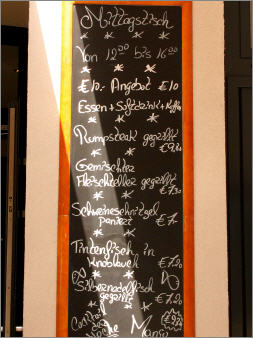 Mittagstisch
Von 12⁰⁰ bis 16⁰⁰
€10.- Angebot €10
Essen + Softdrink + Kaffee
Rumpsteak gegrillt
€9,80
Gemischter
Fleischteller gegrillt
€7,50
Schweineschnitzel
paniert €7.-
Tintenfisch in
Knoblauch €7,20
Silbernadelfisch
gegrillt €7,20
Woche Mango